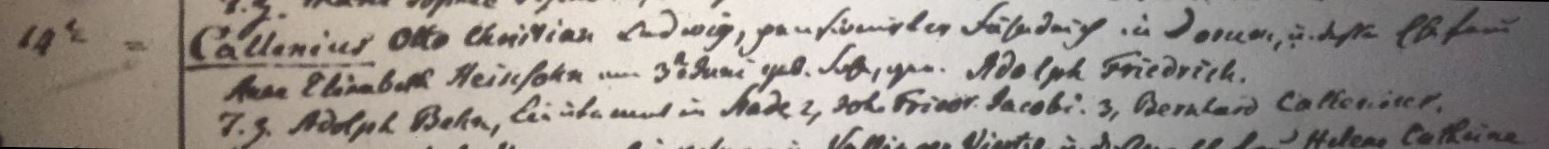 14t = Callenius Otto Christian Ludwig, pensionirter Fähndrich in Dorum, u. dessen Ehefrau
Anna Elisabeth Heinsohn am 3t Juni geb. Sohn, gen. Adolph Friedrich.
T. Z. Adolph Behn, Lieutenant in Stade 2, Joh. Friedr. Jacobi. 3, Bernhard Callenius.
Helene Cathrine